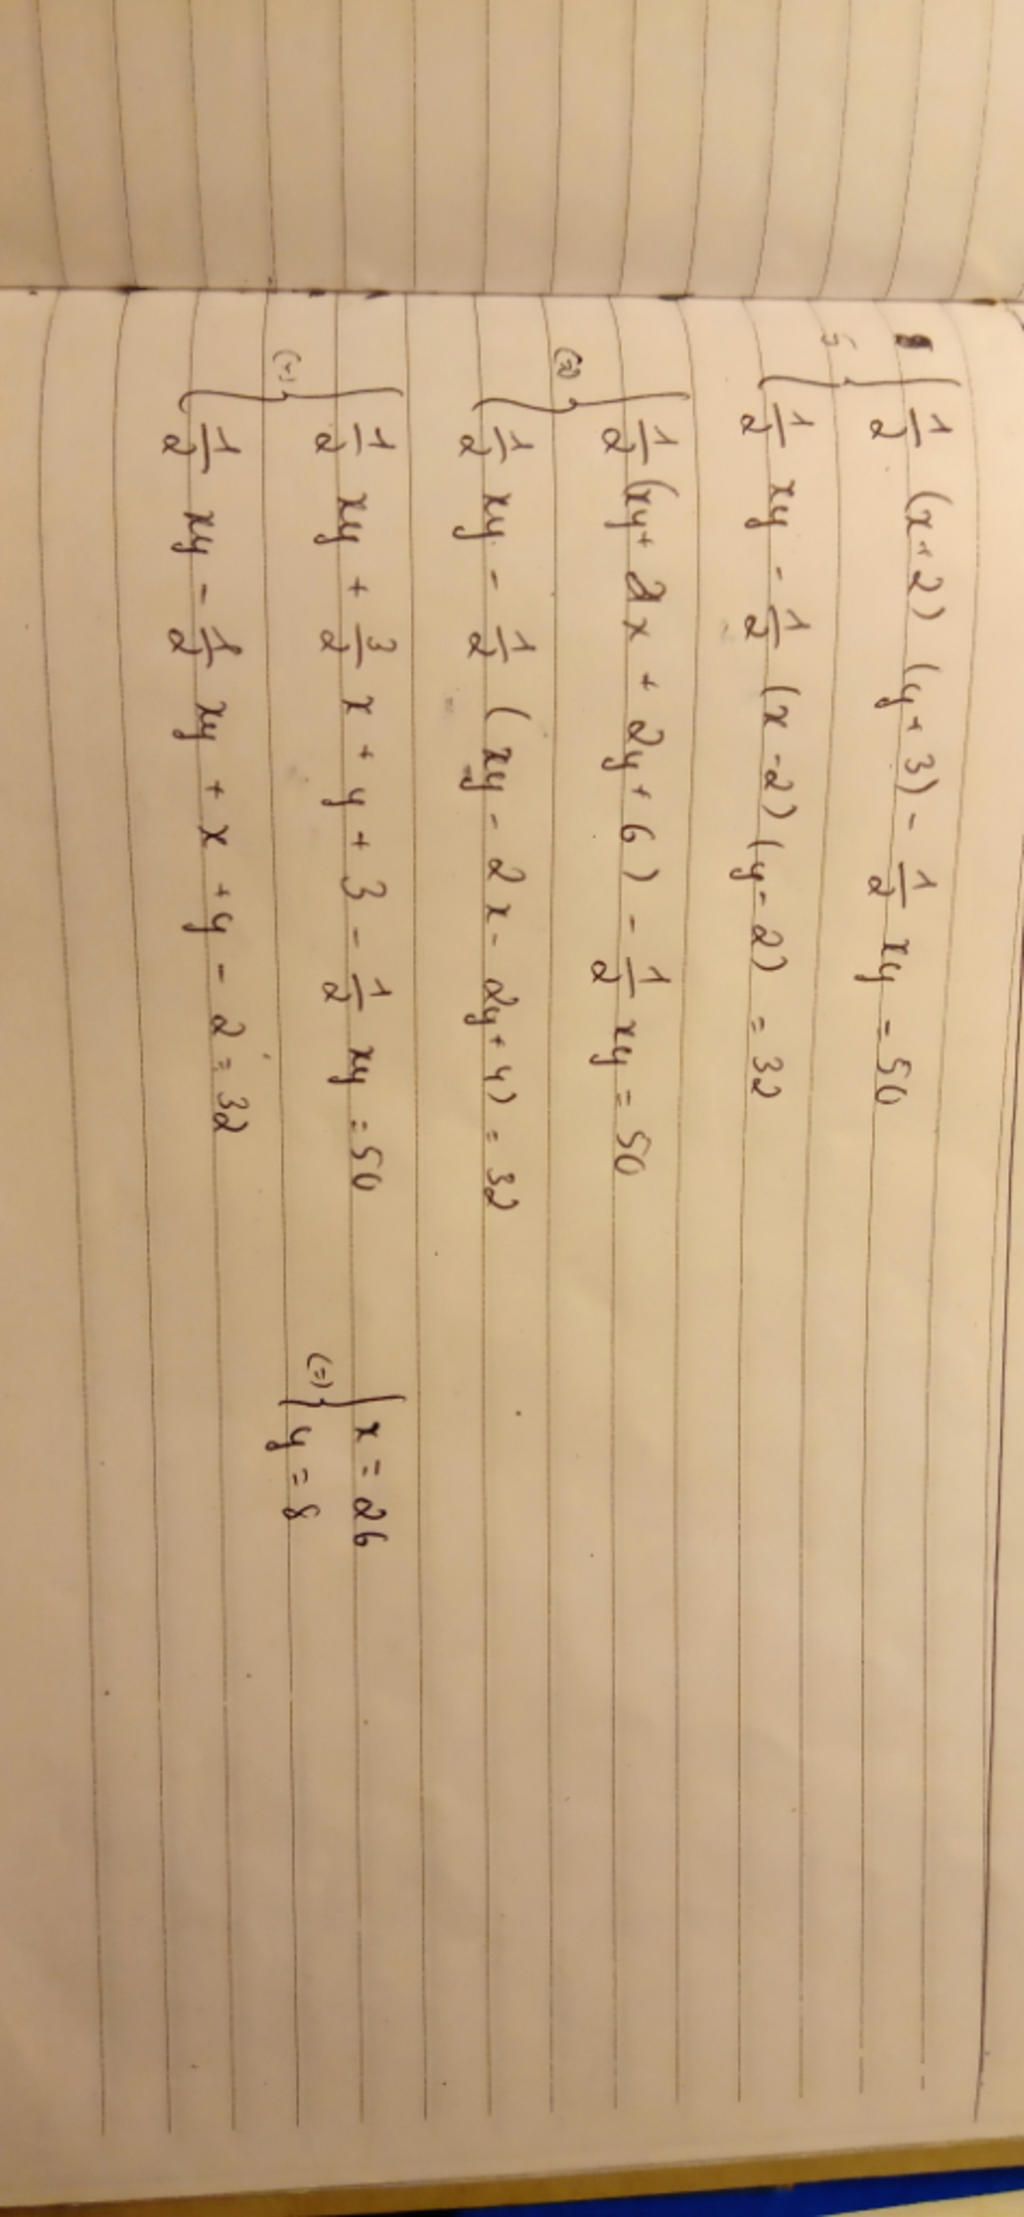 5 { 1/2 (x+2) (y+3) - 1/2 xy = 50
1/2 xy - 1/2 (x-2) (y-2) = 32
(=) { 1/2 (xy + 2x + 2y + 6) - 1/2 xy = 50
1/2 xy - 1/2 (xy - 2x - 2y + 4) = 32
(=) { 1/2 xy + 3/2 x + y + 3 - 1/2 xy = 50
1/2 xy - 1/2 xy + x + y - 2 = 32
(=) { x = 26
y = 8